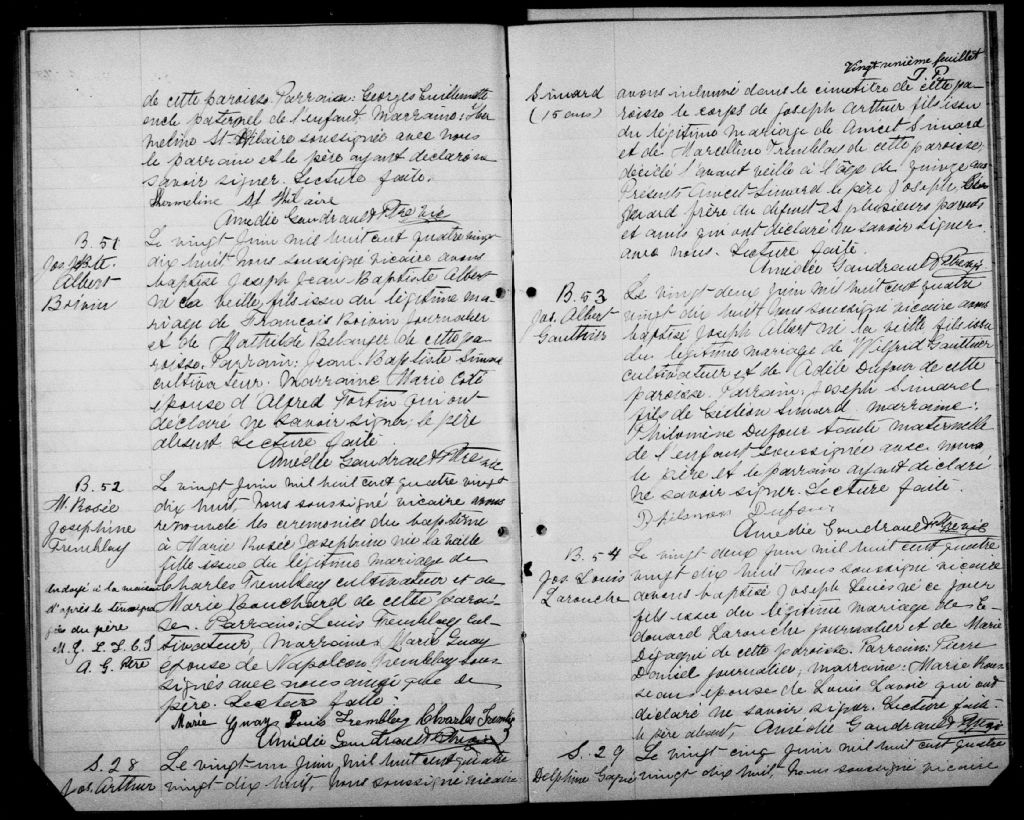 de cette paroisse Parrain: Georges Guillemette
oncle paternel de l'enfant, Marraine: Her
meline St Hilaire soussignée avec nous
le parrain et le père ayant declaré ne
savoir signer. Lecture faite.
Hermeline St Hilaire
Amédie Gaudrault Ptre Vic
B. 51
Jos. J. Bte.
Albert
Boivin
Le vingt Juin mil huit cent quatre vingt
dix huit, nous soussigné vicaire avons
baptisé Joseph Jean Baptiste Albert
né la veille, fils issu du légitime ma-
riage de François Boivin journalier
et de Mathilde Belanger de cette pa-
roisse. Parrain: Jean-Baptiste Simard
cultivateur. Marraine Marie Coté
épouse d'Alfred Fortin qui ont
declaré ne savoir signer, le père
absent Lecture faite.
Amédie Gaudrault Ptre Vic
B. 52
M. Rosée
Josephine
Tremblay
ondoyé à la maison
d'après le témoigna
ge du père
A. G. Ptre
Le vingt Juin mil huit cent quatre vingt
dix huit, nous soussigné vicaire avons
les ceremonies du baptême
à Marie Rosée Josephine née la veille
fille issue du légitime mariage de
Charles Tremblay cultivateur et de
Marie Bouchard de cette parois-
se. Parrain: Louis Tremblay cul-
tivateur, Marraine: Marie Guay
épouse de Napoléon Tremblay sous-
signés avec nous ainsi que le
père. Lecture faite
Marie Guay Louis Tremblay Charles Tremblay
Amédie Gaudrault Ptre Vic
S. 28
Jos. Arthur
Le vingt-un Juin, mil huit cent quatre
vingt dix huit, nous soussigné vicaire
Vingt unième feuillet
J. P.
Simard
(15 ans)
avons inhumé dans le cimetière de cette pa-
roisse le corps de Joseph Arthur fils issu
du légitime mariage de Anicet Simard
et de Marcelline Tremblay de cette paroisse,
décédé l'avant veille à l'âge de quinze ans
Présents Anicet Simard le père Joseph
Simard frère du defunt et plusieurs parents
et amis qui ont déclaré ne savoir signer
avec nous. Lecture faite.
Amédie Gaudrault Ptre Vic
B. 53
Jos. Albert
Gauthier
Le vingt deux Juin mil huit cent quatre
vingt dix huit nous soussigné vicaire avons
baptisé Joseph Albert né la veille fils issu
du légitime mariage de Wilfrid Gauthier
cultivateur et de Adèle Dufour de cette
paroisse. Parrain: Joseph Simard
fils de Simard Marraine:
Philomène Dufour tante maternelle
de l'enfant soussignée avec nous
le père et le parrain ayant declaré
ne savoir signer. Lecture faite.
Philomen Dufour
Amédie Gaudrault Ptre Vic
B. 54
Jos. Louis
Larouche
Le vingt deux Juin mil huit cent quatre
vingt dix huit nous soussigné vicaire
avons baptisé Joseph Louis né ce jour
fils issu du légitime mariage de E-
douard Larouche journalier et de Marie
de cette paroisse. Parrain: Pierre
Daniel journalier, marraine: Marie Rous-
seau épouse de Louis Lavoie qui ont
declaré ne savoir signer. Lecture faite
le père absent, Amédie Gaudrault Ptre Vic
S. 29
Delphine Gagné
Le vingt cinq Juin mil huit cent quatre
vingt dix huit, nous soussigné vicaire